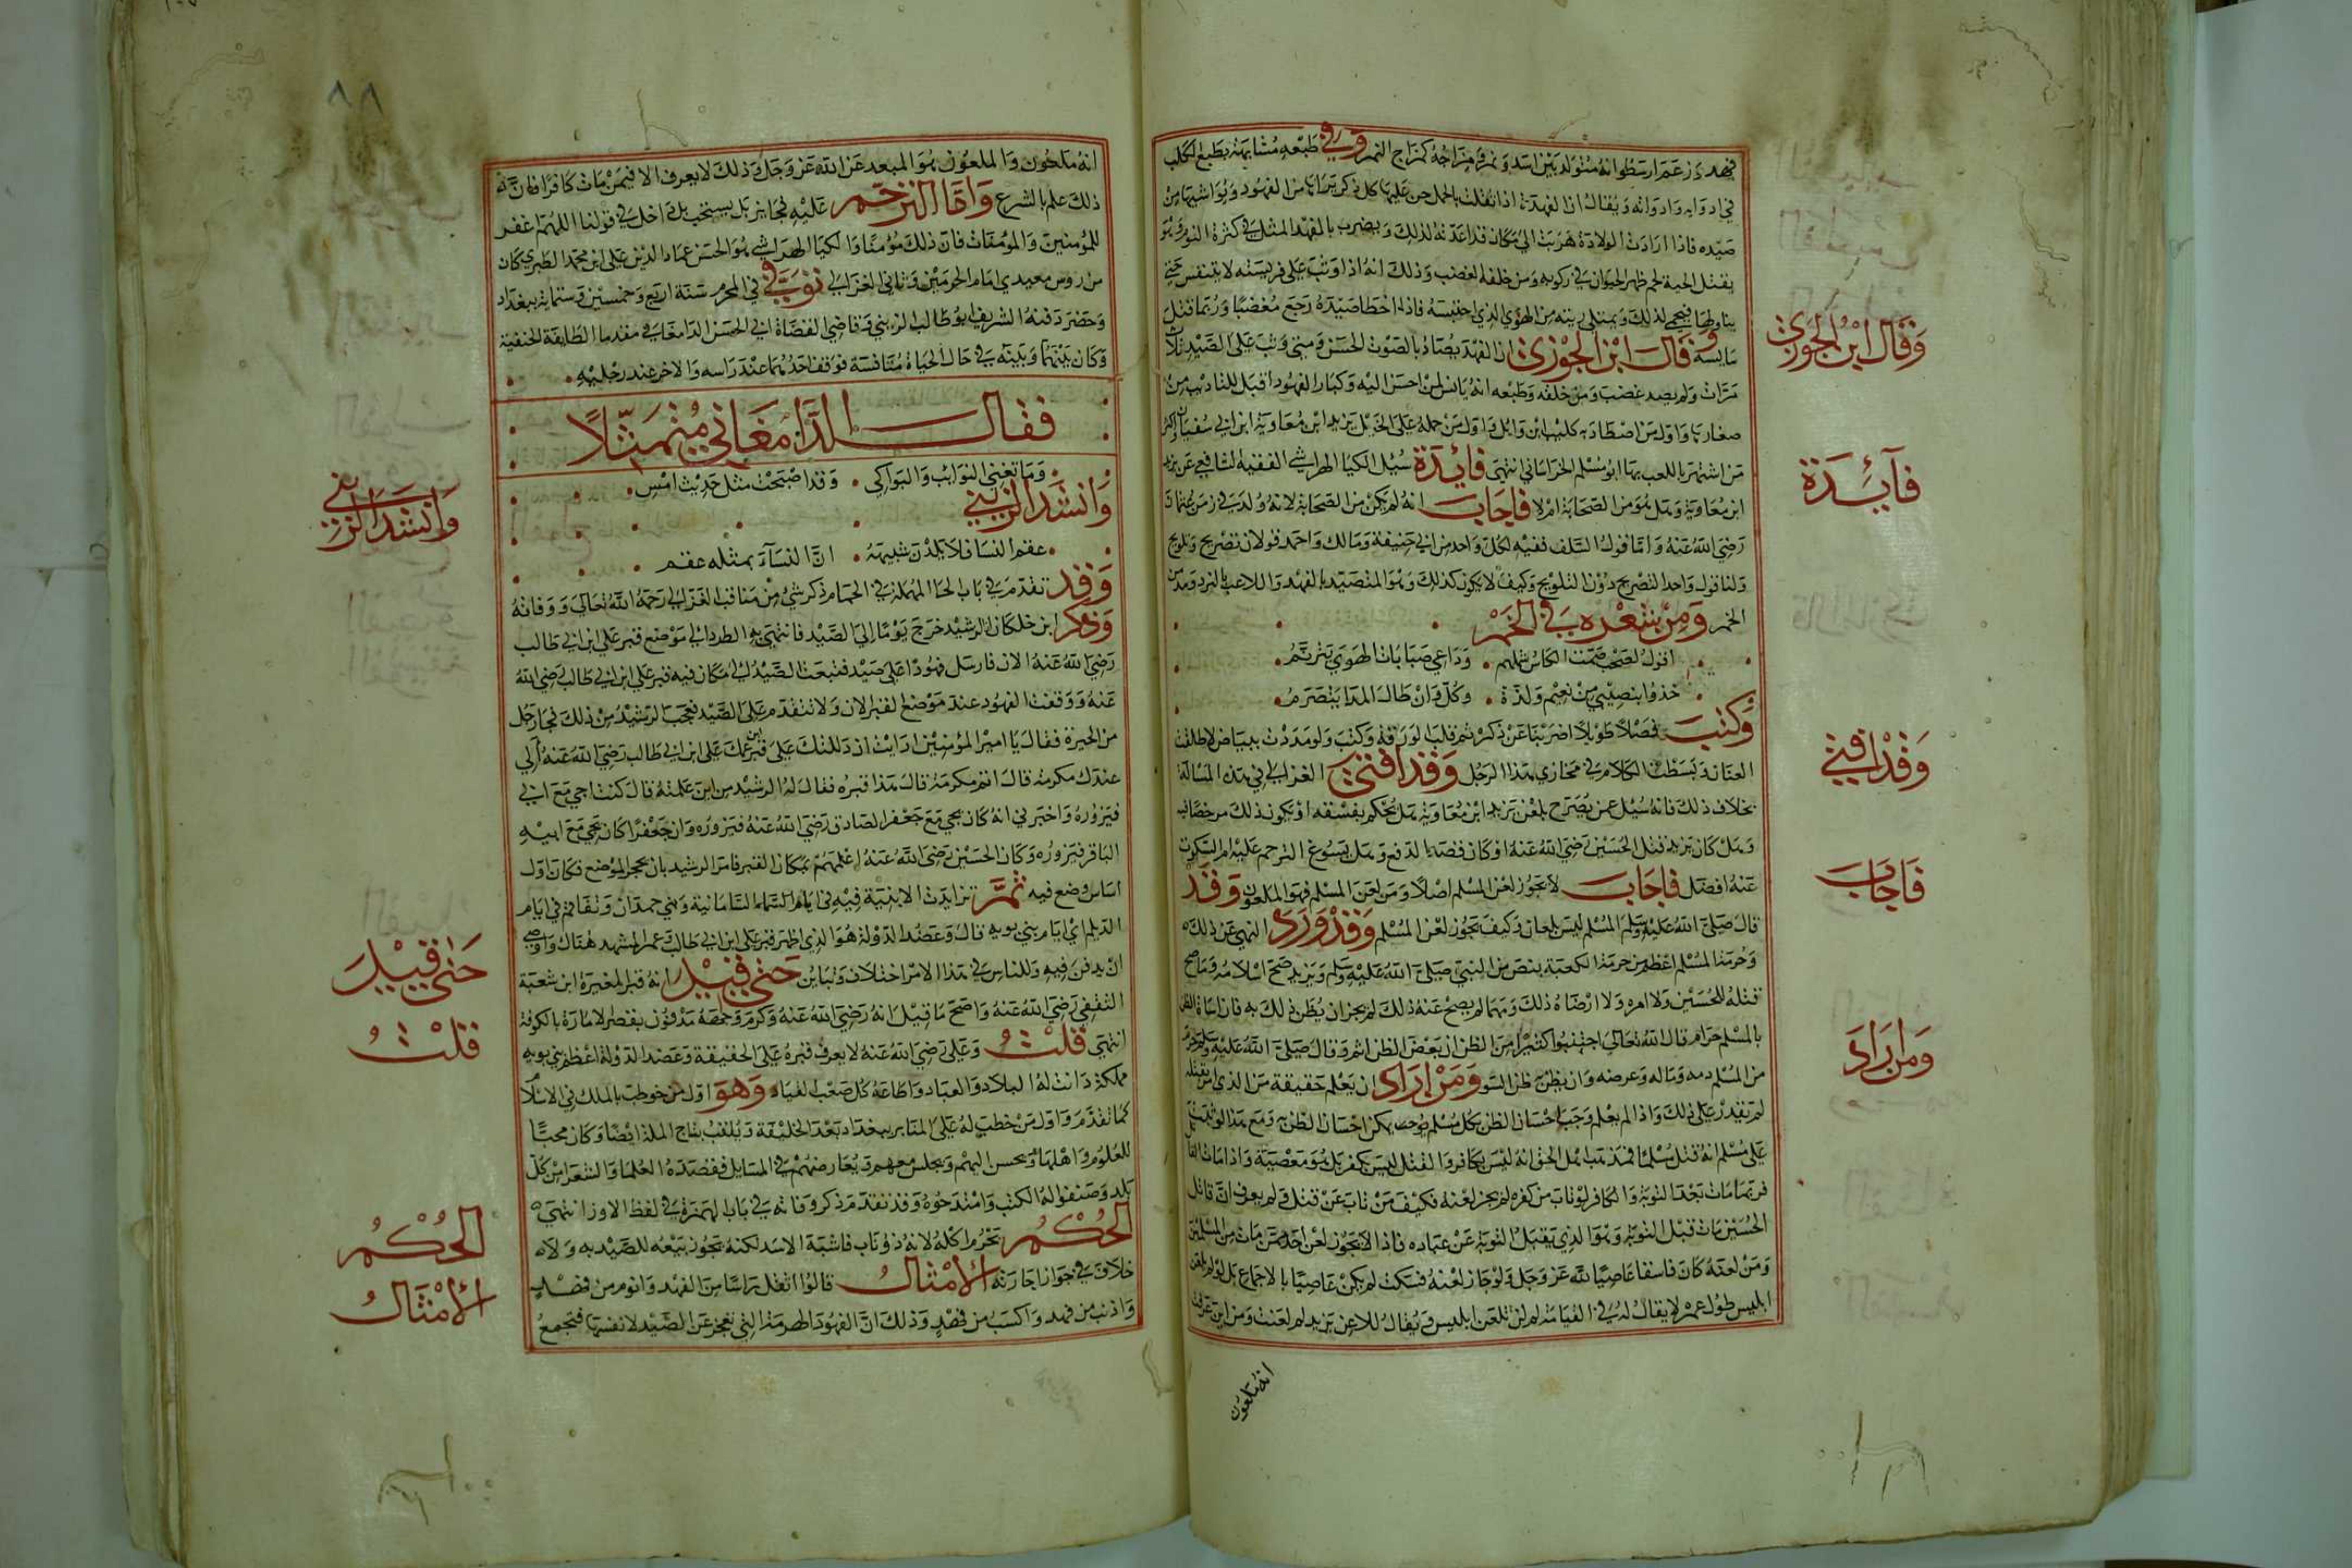 فهد وزعم ارسطوا انه متولد بين اسد ونمرة مزاجه كمزاج النمر وفي طبعه مشابهة بطبع الكلب
في ادوايه وادوانه ويقال ان الفهدة اذا ثقلت بالحمل حن عليها كل ذكر يراها من الفهود ويواسيها من
صيده فاذا ارادت الولادة هربت الي مكان قد اعدته لذلك ويضرب بالفهد المثل في كثرة النوم وهو
يقتل الحية لحم ظهر الحيوان في ركوبه ومن خلقه الغضب وذلك انه اذا وثب على فريسته لا يتنفس حتي
ينا ولها فيحمي لذلك ويمتلي ريته من الهوي الذي احتبسه فاذا اخطا صيده رجع مغضبا وربما قتل
سايسه وقال ابن الجوزي ان الفهد يصاد بالصوت الحسن ومتي وثب على الصيد ثلاث
مرات ولم يصد غضب ومن خلقه وطبعه انه يانس لمن احسن اليه وكبار الفهود اقبل للتاديب من
صغارها واول من اصطاد به كليب ابن وايل واول من حمله على الخيل يزيد ابن معاوية ابن ابي سفيان واكثر
من اشتهر باللعب بها ابو مسلم الخراساني انتهى فائدة سئل الكيا الهراشي الفقيه الشافعي عن يزيد
ابن معاوية وهل هو من الصحابة ام لا فاجاب انه لم يكن من الصحابة لانه ولد في زمن عثمان
رضي الله عنه واما قول السلف ففيه لكل واحد من ابي حنيفة ومالك واحمد قولان تصريح وتلويح
ولنا قول واحد التصريح دون التلويح وكيف لا يكون كذلك وهو المتصيد بالفهد واللاعب بالنرد ومدمن
الخمر ومن شعره في الخمر
اقول لصحب ضمت الكاس شملهم . وداعي صبابات الهوي يترنم
خذوا بنصيبي من نعيم ولذة . وكل وان طال المدا يتصرم
وكتب فصلا طويلا اضربنا عن ذكره ثم قلب الورقة وكتب ولو مددت ببياض لاطلقت
العنان وبسطت الكلام في مخازي هذا الرجل وقد افتي الغزالي في هذه المسالة
بخلاف ذلك فانه سئل عمن يصرح بلعن يزيد ابن معاوية هل يحكم بفسقه او يكون ذلك مرخصا فيه
وهل كان يزيد قتل الحسين رضي الله عنه او كان قصده الدفع وهل يسوغ الترحم عليه ام السكوت
عنه افضل فاجاب لا يجوز لعن المسلم اصلا ومن لعن المسلم فهو الملعون وقد
قال صلي الله عليه وسلم المسلم ليس بلعان وكيف يجوز لعن المسلم وقد ورد النهي عن ذلك
وحرمة المسلم اعظم من حرمة الكعبة بنص من النبي صلي الله عليه وسلم ويزيد صح اسلامه وما صح
قتله للحسين ولا امره ولا ارضاه ذلك ومهما لم يصح عنه ذلك لم يجز ان يظن ذلك به فان اساة الظن
بالمسلم حرام قال الله تعالى اجتنبوا كثيرا من الظن ان بعض الظن اثم وقال صلي الله عليه وسلم حرم
من المسلم دمه وماله وعرضه وان يظن به ظن السو ومن اراد ان يعلم حقيقة من الذي امر بقتله
لم يقدر على ذلك واذا لم يعلم وجب احسان الظن بكل مسلم يمكن احسان الظن به ومع هذا لو ثبت
على مسلم انه قتل مسلما فمذهب اهل الحق انه ليس بكافر والقتل ليس بكفر بل هو معصية واذا مات القاتل
فربما مات بعد التوبة والكافر لو تاب من كفره لم يجز لعنه فكيف من تاب عن قتل ولم يعرف ان قاتل
الحسين مات قبل التوبة وهو الذي يقبل التوبة عن عباده فاذا لا يجوز لعن احد ممن مات من المسلمين
ومن لعنه كان فاسقا عاصيا لله عز وجل ولو جاز لعنه فسكت لم يكن عاصيا بالاجماع بل لو لم يلعن
ابليس طول عمره لا يقال له في القيامة لم لن تلعن ابليس ويقال للاعن يزيد لم لعنت ومن اين عرفت
انه ملعون
وقال ابن الجوزي
فآئدة
وقد افتي
فاجاب
ومن اراد
٨٨
انه ملعون والملعون هو المبعد عن الله عز وجل وذلك لا يعرف الا فيمن مات كافرا فان
ذلك علم بالشرع واما الترحم عليه فجايز بل يستحب بل داخل في قولنا اللهم اغفر
للمؤمنين والمؤمنات فان ذلك مؤمنا والكيا الهراشي هو الحسن عماد الدين علي ابن محمد الطبري كان
من روس معيدي امام الحرمين وثاني الغزالي توفي في المحرم سنة اربع وخمسين وستماية ببغداد
وحضر دفنه الشريف ابو طالب الزينبي وقاضي القضاة ابي الحسن الدامغاني مقدما الطايفة الحنفية
وكان بينهما وبينه في حال الحياة منافسة فوقف احدهما عند راسه والاخر عند رجليه
فقال الدامغاني متمثلا
وما تغني النوايب والبواكي . وقد اصبحت مثل حديث امس
وانشد الزينبي
عقم النسا فلا يلدن شبيهه . ان النسآء بمثله عقم
وقد تقدم في باب الحا المهملة في الحمام ذكر شي من مناقب الغزالي رحمه الله تعالى ووفاته
وذكر ابن خلكان ان الرشيد خرج يوما الي الصيد فانتهي به الطرد الي موضع قبر علي ابن ابي طالب
رضي الله عنه الان فارسل فهودا على صيد فتبعت الصيد الي مكان فيه قبر علي ابن ابي طالب رضي الله
عنه ووقفت الفهود عند موضع القبر الان ولا تتقدم على الصيد فعجب الرشيد من ذلك فجا رجل
من الحيرة فقال يا امير المؤمنين ارايت ان دللتك على قبر ابن عمك علي ابن ابي طالب رضي الله عنه الي
عندك مكرمة قال اتم مكرمة قال هذا قبره فقال له الرشيد من اين علمته قال كنت اجي مع ابي
فيزوره واخبرني انه كان يجي مع جعفر الصادق رضي الله عنه فيزوره وان جعفرا كان يجي مع ابيه
الباقر فيزوره وكان الحسين رضي الله عنه اعلمهم بمكان القبر فامر الرشيد بان يحجر الموضع فكان اول
اساس وضع فيه ثم تزايدت الابنية فيه في ايام السامانية وبني حمدان وتفاقم في ايام
الديلم اي ايام بني بويه قال وعضد الدولة هو الذي اظهر قبر علي ابن ابي طالب وعمر المشهد هناك واوصي
ان يدفن فيه وللناس في هذا الامر اختلاف وتباين حتي قيل انه قبر المغيرة ابن شعبة
الثقفي رضي الله عنه واصح ما قيل انه رضي الله عنه وكرم وجهه مدفون بقصر الامارة بالكوفة
انتهى قلت وعلي رضي الله عنه لا يعرف قبره على الحقيقة وعضد الدولة اعظم بني بويه
مملكة دانت له البلاد والعباد واطاعه كل صعب القياد وهو اول من خوطب بالملك في الاسلام
كما تقدم واول من خطب له على المنابر ببغداد بعد الخليفة ويلقب بتاج الملة ايضا وكان محبا
للعلوم واهلها ويحسن اليهم ويجلس معهم ويعارضهم في المسايل فقصده العلما والشعرا من كل
بلد وصنفوا له الكتب وامتدحوه وقد تقدم ذكر وفاته في باب الهمزة في لفظ الاوز انتهى
الحكم يحرم اكله لانه ذو ناب فاشبه الاسد لكنه يجوز بيعه للصيد به ولا
خلاف في جواز اجارته الامثال قالوا اثقل راسا من الفهد وانوم من فهد
واذنب من فهد واكسب من فهد وذلك ان الفهود الهرمة التي تعجز عن الصيد لانفسها فتجمع
وانشد الزينبي
حتى قيل
قلت
الحكم
الامثال